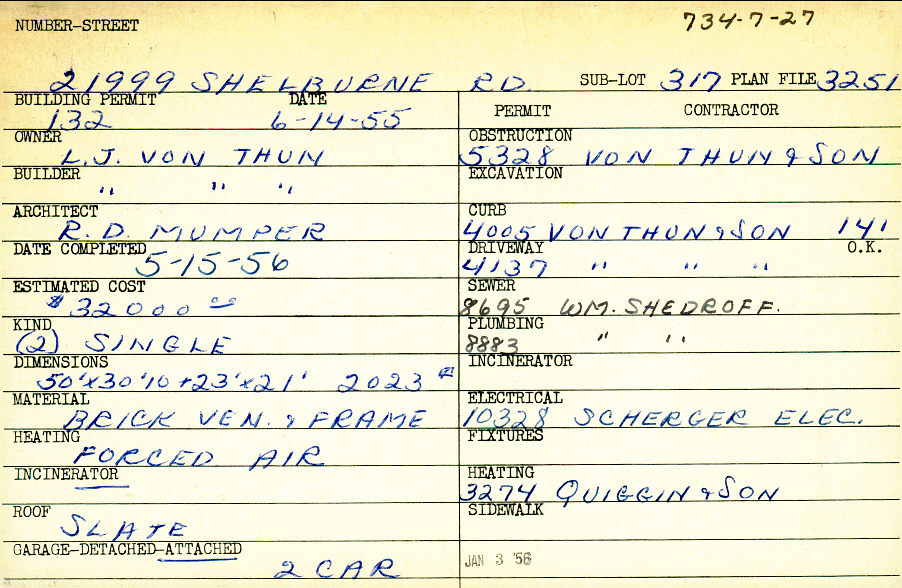 NUMBER-STREET 734-7-27
21999 SHELBURNE RD. SUB-LOT 317 PLAN FILE 3251
BUILDING PERMIT DATE
132 6-14-55
PERMIT CONTRACTOR
OWNER
L.J. VON THUN
OBSTRUCTION
5328 VON THUN & SON
BUILDER
" " "
EXCAVATION
ARCHITECT
R.D. MUMPER
CURB
4005 VON THUN & SON 141'
DATE COMPLETED
5-15-56
DRIVEWAY O.K.
4137 " " "
ESTIMATED COST
$32000 00
SEWER
8695 WM. SHEDROFF.
KIND
(2) SINGLE
PLUMBING
8883 " "
DIMENSIONS
50'x30'10+23'x21' 2023
INCINERATOR
MATERIAL
BRICK VEN. & FRAME
ELECTRICAL
10328 SCHERGER ELEC.
HEATING
FORCED AIR
FIXTURES
INCINERATOR
HEATING
3274 QUIGGIN & SON
ROOF
SLATE
SIDEWALK
GARAGE-DETACHED-ATTACHED
2 CAR
JAN 3 '56